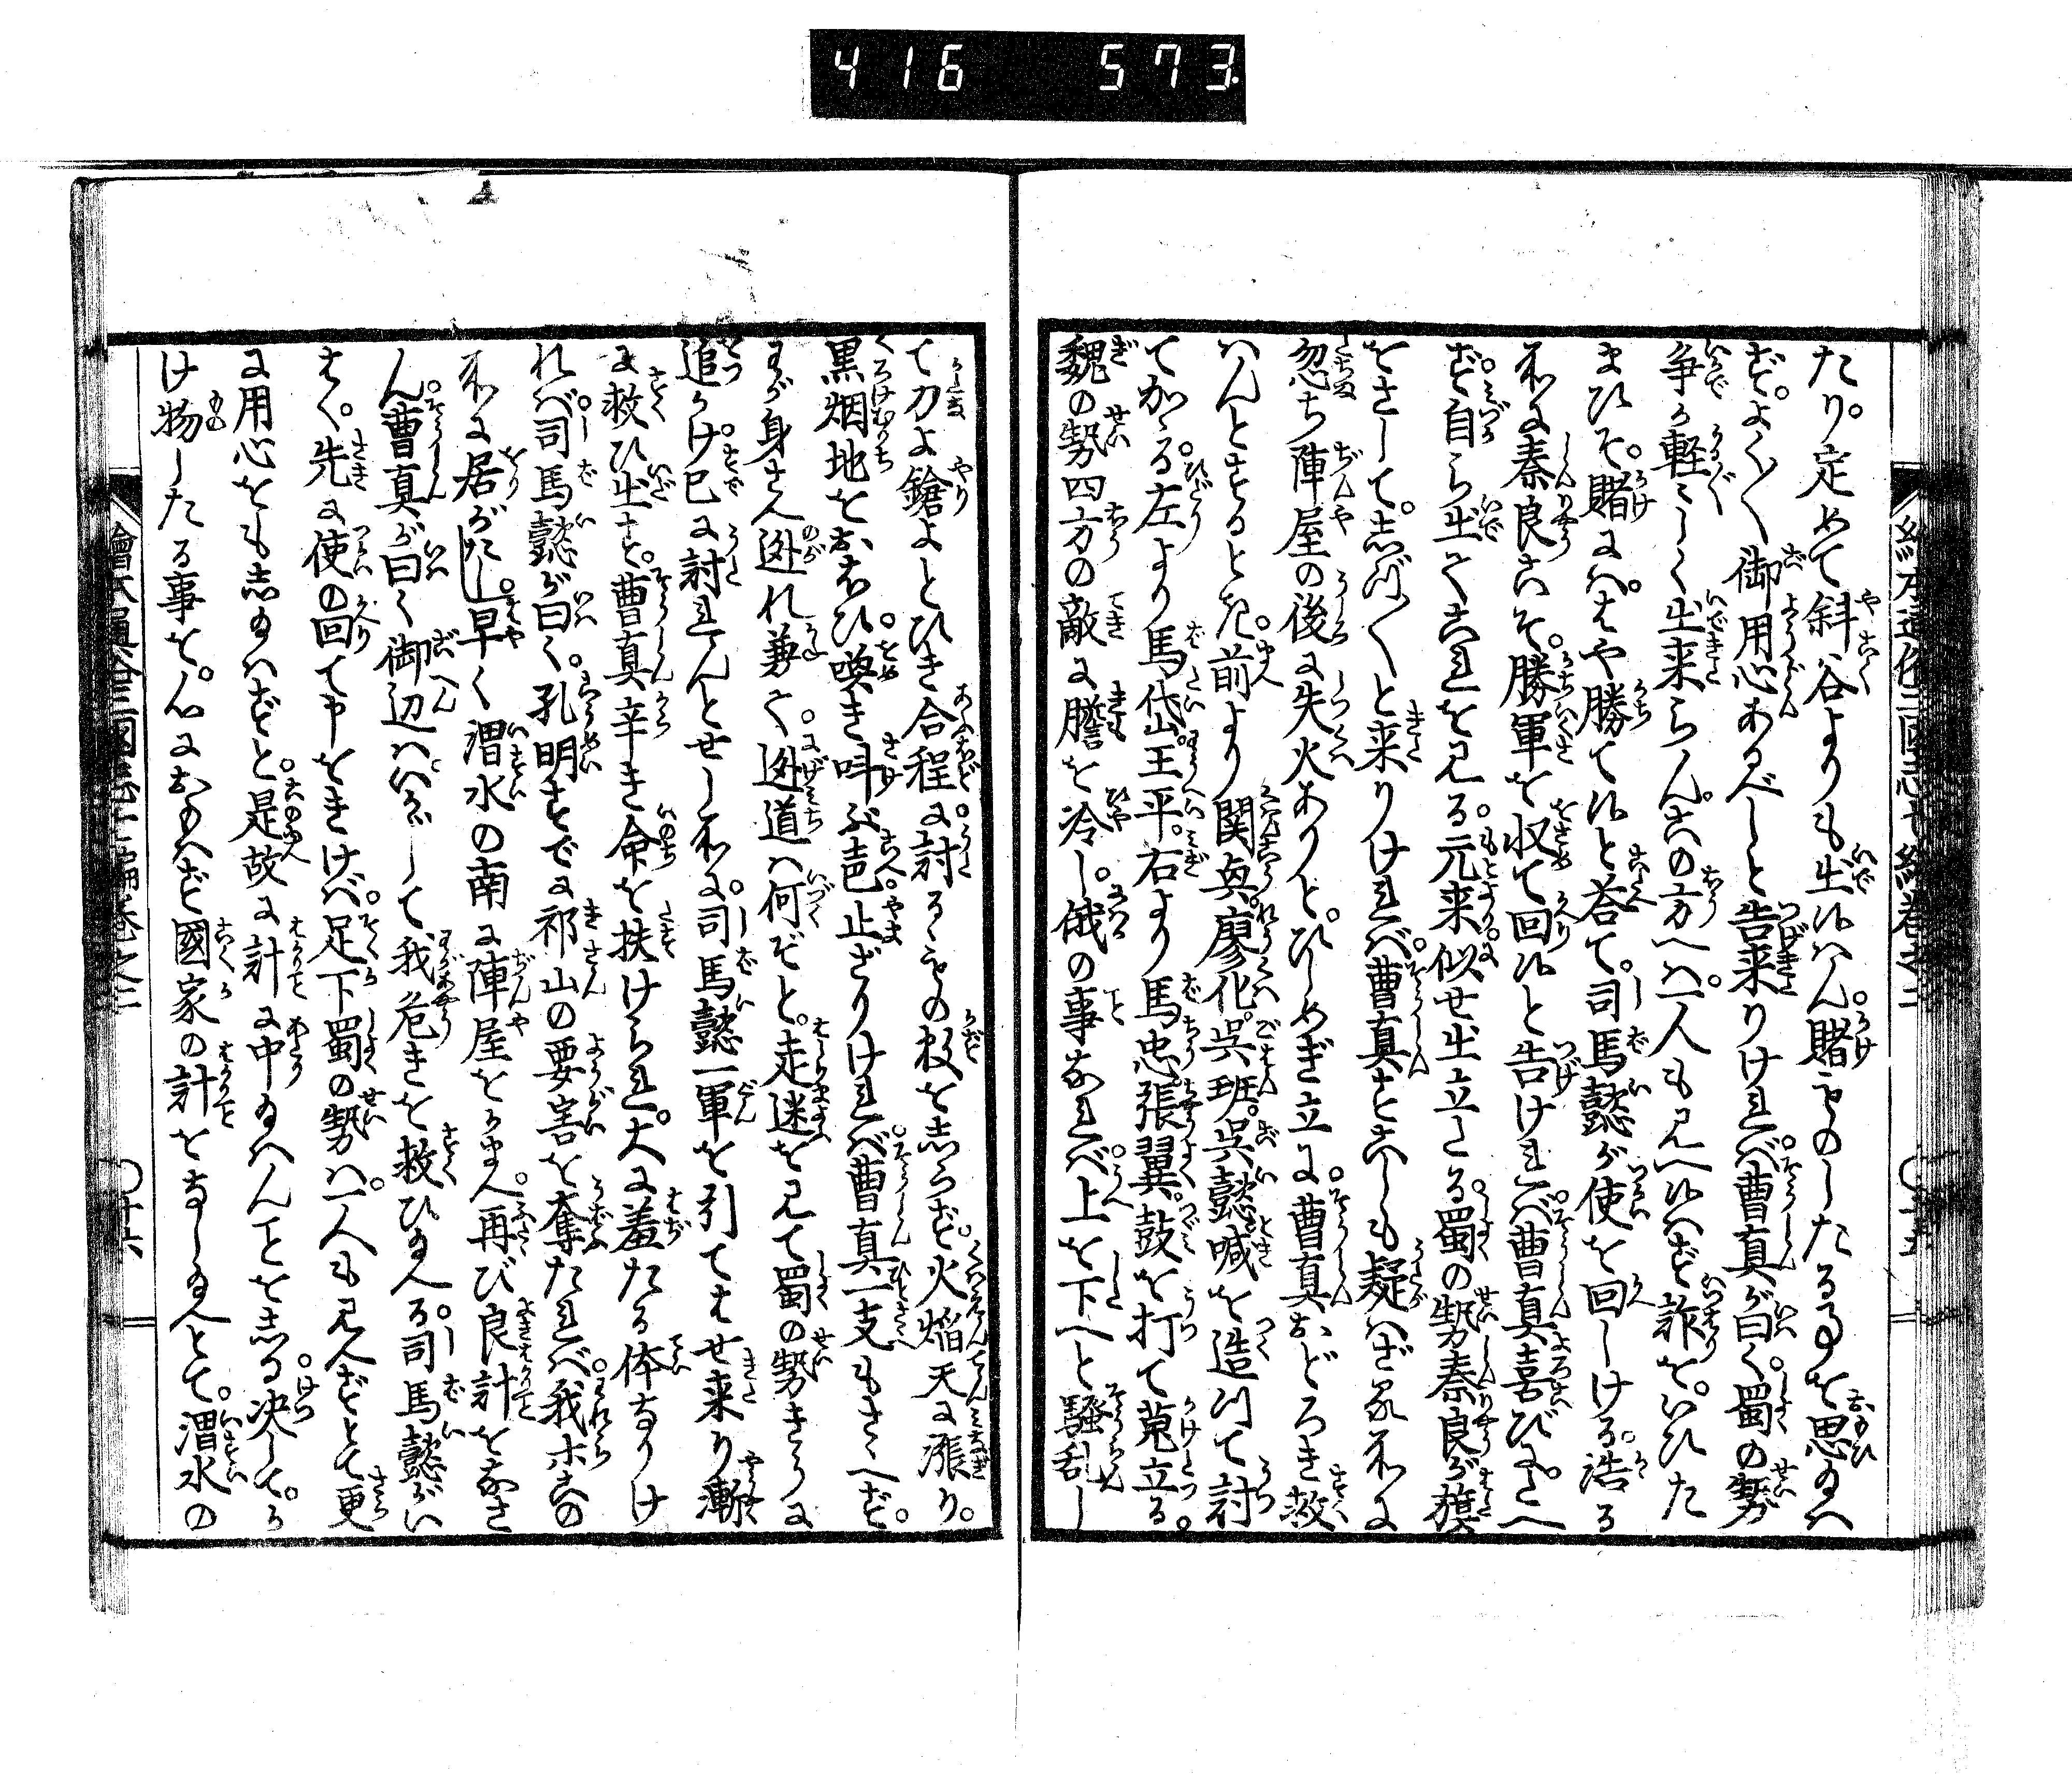 416 573
たり。定めて斜谷よりも出候はん。賭ものしたる事を思ゐへ
ず。よく〳〵御用心あるべしと告来りけれバ曹真が曰く。蜀の勢
争か軽〻しく出来らん。此の方へハ一人も見へ候ハず詐を。いひた
まひそ。賭にハ。はや勝て候と答て。司馬懿が使を回しける。浩る
所に秦良こそ。勝軍を収て回候と告けれバ曹真喜びむかへ
ず自ら出てこれを見る。元来似せ出立たる。蜀の勢秦良が旗
をさして。しづ〳〵と来りけれバ。曹真すこしも疑ハざる所に
忽ち陣屋の後に失火ありと。ひしめぎ立に。曹真おどろき救
ハんとするとき。前より関興。廖化。呉班。呉懿喊を造つて討
てかゝる。左より馬岱。王平。右より馬忠張翼。鼓を打て蒐立る。
魏の勢四方の敵に膽を冷し。俄の事なれバ。上を下へと騒乱し
て刀よ鎗よとひき合程に。討るゝもの数をしらず。火焔天に漲り。
黒烟地をおほひ。喚き叫ぶ声。止ざりけれバ。曹真一支もさゝへず。
わが身さへ迯れ兼て。迯道ハ何ぞと。走迷を見て蜀の勢きうに
追かけ。已に討れんとせし所に。司馬懿一軍を引てはせ来り漸
に救ひ出す。曹真辛き命を扶けられ。大に羞たる体なりけ
れバ。司馬懿が曰く。孔明すでに祁山の要害を奪たれバ。我ホ此の
所に居がたし。早く渭水の南に陣屋をかまへ。再び良計をなさ
ん。曹真が曰く御辺ハいかにして我危きを救ひゐへる。司馬懿がい
はく。先に使の回て申をきけバ。足下蜀の勢ハ。一人も見へずとて更
に用心をもしゐハずと。是故に計に中ゐハんことをしる。決して。か
け物したる事を。心におゐハず國家の計をなしゐへとて。渭水の